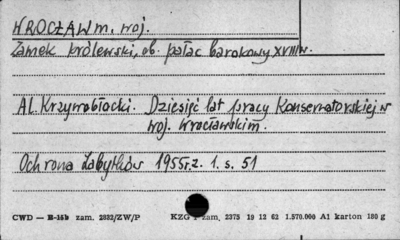 WROCŁAW m. woj.
Zamek królewski, ob. pałac barokowy XVIII w.
Al. Krzywobłocki. Dziesięć lat pracy Konserwatorskiej w
woj. wrocławskim.
Ochrona Zabytków 1955 r. z. 1. s. 51
CWD — R-15b zam. 2882/ZW/P KZG zam. 2375 19 12 62 1.570.000 A1 karton 180 g